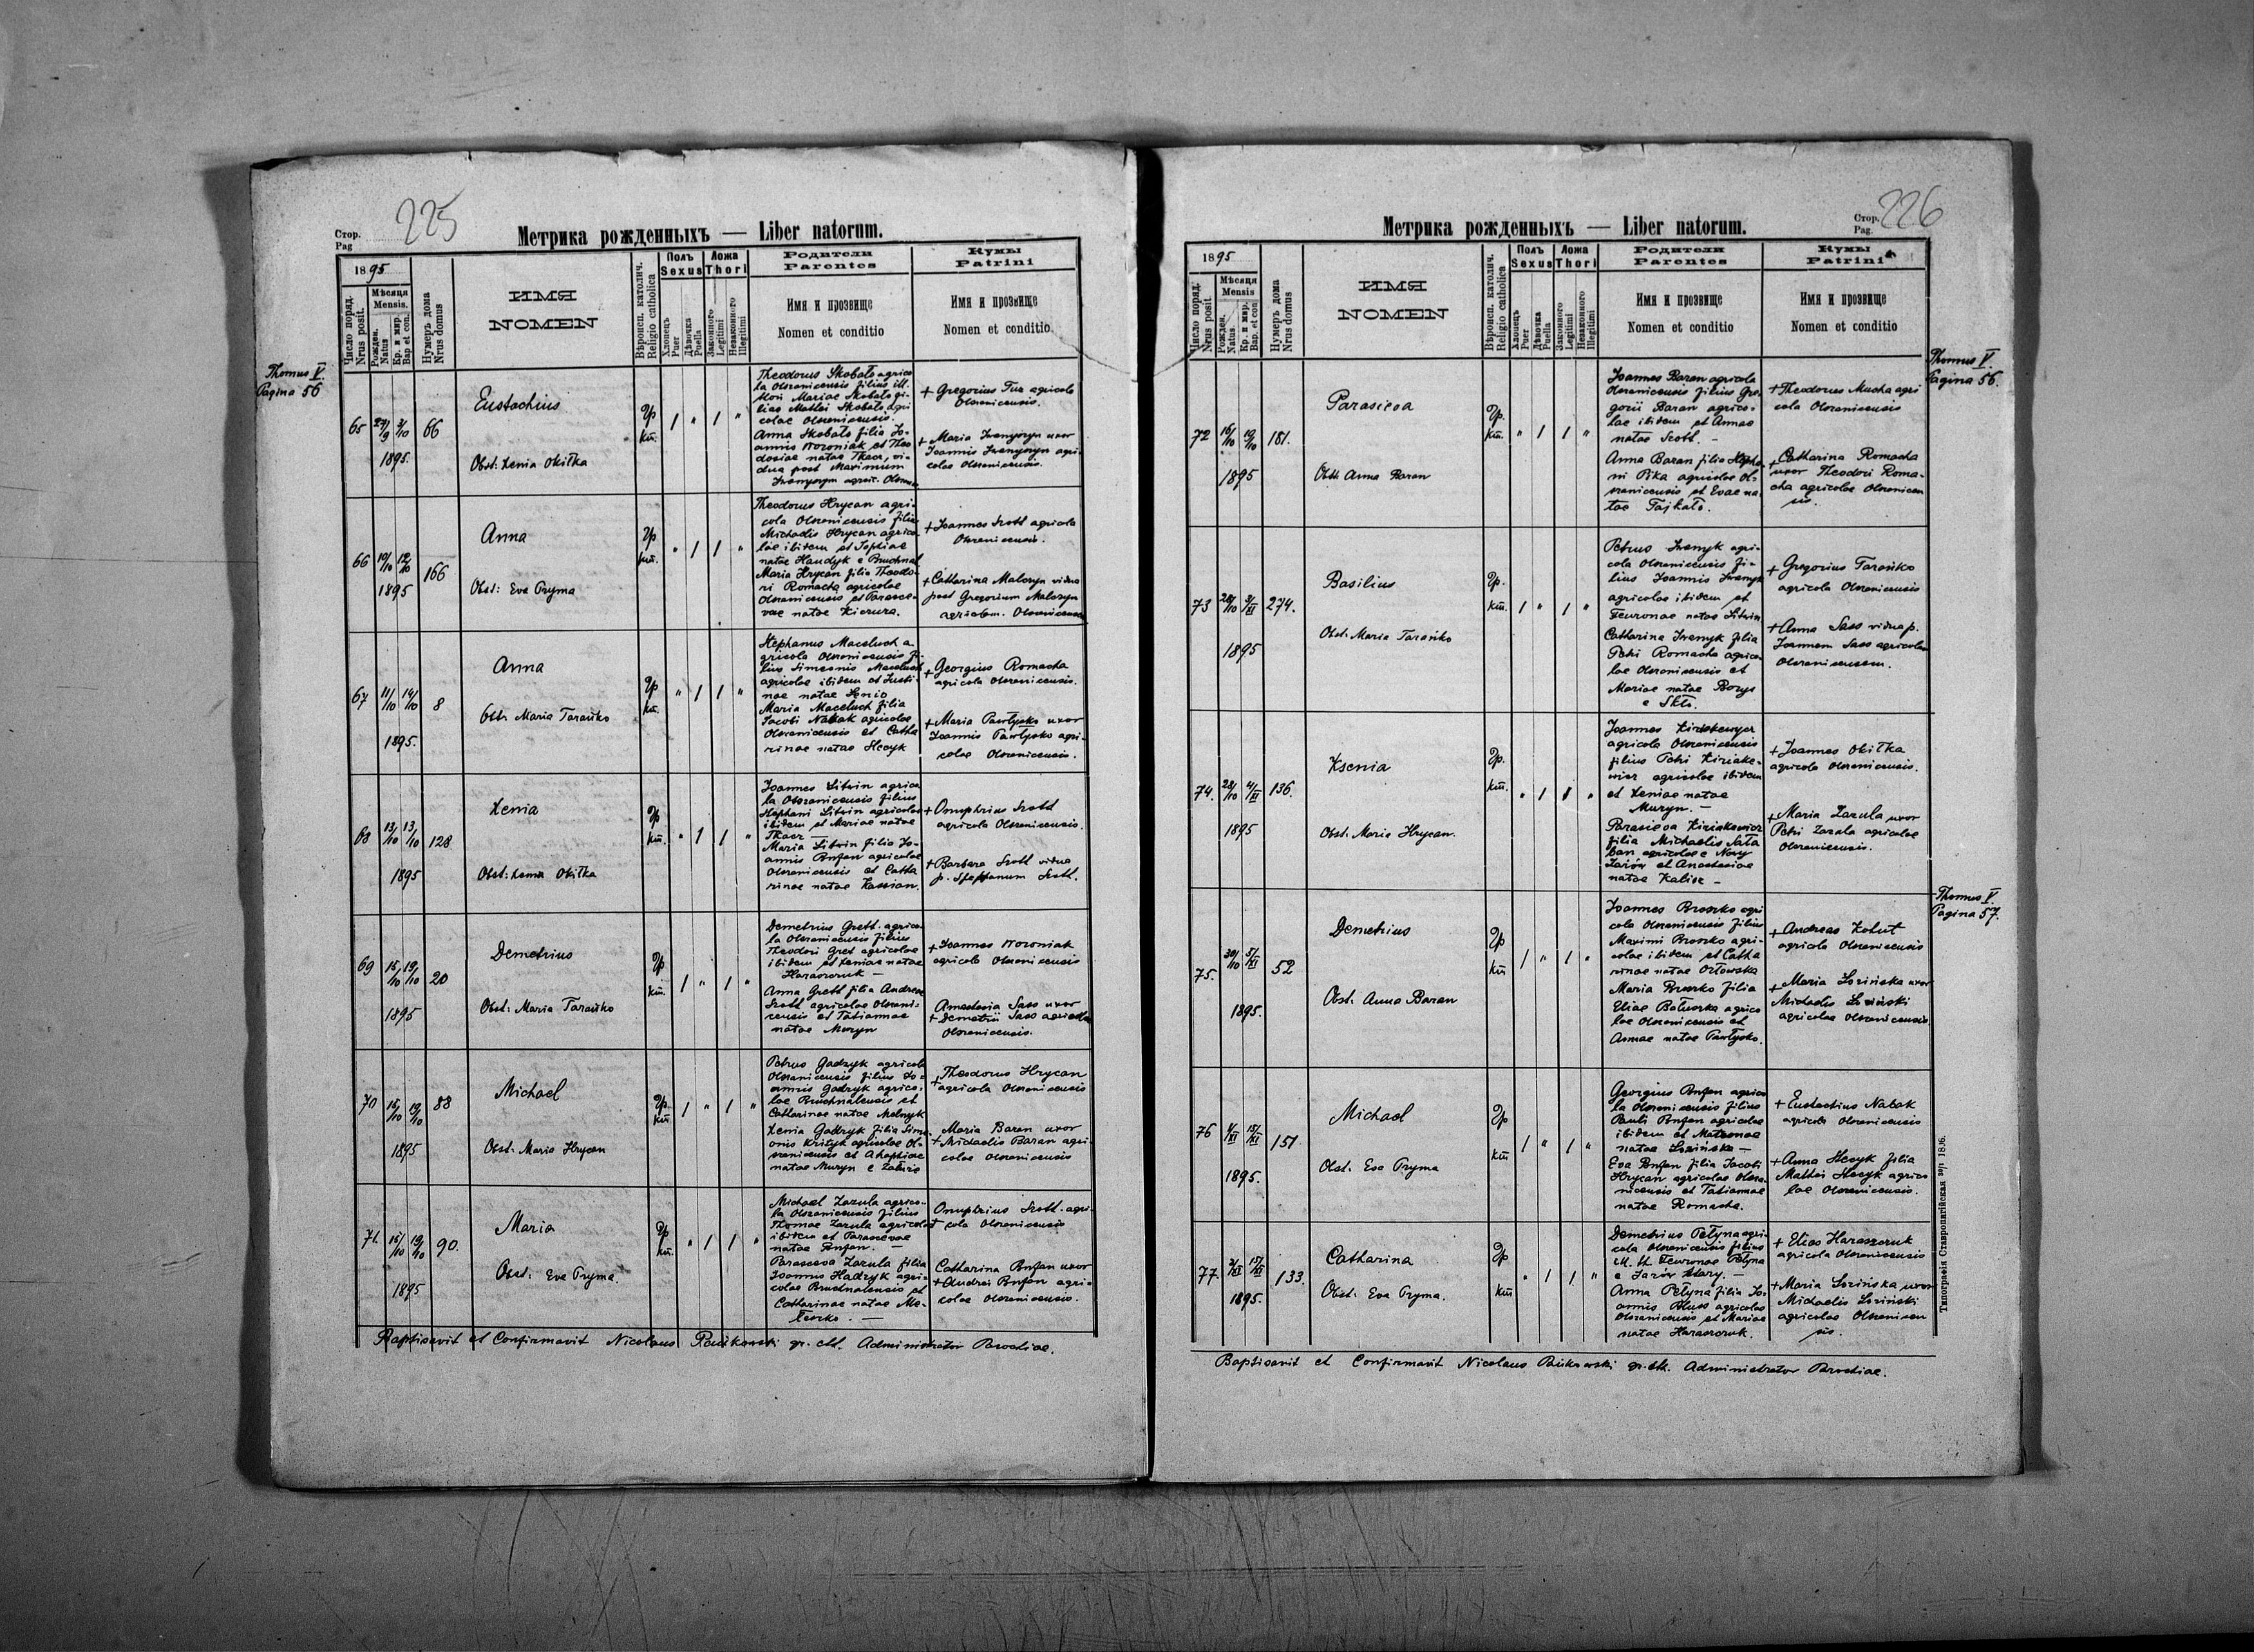 225
Стор.
Pag
Метрика рожденныхъ — Liber natorum.
1895
Число поряд.
Nrus posit.
Мѣсяця
Mensis.
Рожден.
Natus
Кр. и мир.
Bap. et con.
Нумеръ дома
Nrus domus
ИМЯ
NOMEN
Вѣроисп. католич.
Religio catholica
Полъ
Sexus
Хлопець
Puer
Дѣвочка
Puella
Ложа
Thori
Законного
Legitimi
Незаконного
Illegitimi
Родители
Parentes
Имя и прозвище
Nomen et conditio
Кумы
Patrini
Имя и прозвище
Nomen et conditio
Thomus V.
Pagina 56
65 27/9 3/10 66
1895.
Eustachius
Obst: Xenia Okiłka
Гр
кат.
Theodorus Skobało agrico
la Olszanicensis filius ill.
Mariae Skobało fi-
liae Mathei Skobało agri
colae Olszanicensis.
Anna Skobało filia Jo-
annis Woroniak et Theo
dosiae natae Tkacz, vi-
dua post Maximum
Iwanyszyn agric.
+ Gregorius Fuz agricola
Olszanicensis.
+ Maria Iwanyszyn uxor
Joannis Iwanyszyn agri-
colae Olszanicensis.
66 10/10 12/10 166
1895
Anna
Obst: Eva Pryma
Гр
кат.
Theodorus Hrycan agri-
cola Olszanicensis filius
Michaelis Hrycan agrico
lae ibidem et Sophiae
natae Handyk e Bruchnal
Maria Hrycan filia Theodo-
ri Romacha agricolae
Olszanicensis et Parasce-
vae natae Kiernra.
+ Joannes Szott agricola
Olszanicensis.
+ Catharina Maloszyn vidua
post Gregorium Maloszyn
agricolam. Olszanicensem
67 11/10 14/10 8
1895.
Anna
Obst: Maria Tarańko
Гр
кат.
Stephanus Maceluch a-
gricola Olszanicensis fi-
lius Simeonis Maceluch
agricolae ibidem et Justi-
nae natae Senio
Maria Maceluch filia
Jacobi Natak agricolae
Olszanicensis et Catha
rinae natae Hecyk
+ Georgius Romacha
agricola Olszanicensis.
+ Maria Pawłysko uxor
Joannis Pawłysko agri-
colae Olszanicensis.
68 13/10 13/10 128
1895
Xenia
Obst: Xenia Okiłka
Гр
кат.
Joannes Litwin agrico
la Olszanicensis filius
Stephani Litwin agricolae
ibidem et Mariae natae
Tkacz —
Maria Litwin filia Jo-
annis Pryjan agricolae
Olszanicensis et Catha
rinae natae Kassian.
+ Onuphrius Szott
agricola Olszanicensis.
+ Barbara Szott vidua
p. Stephanum Szott.
69 15/10 19/10 20
1895
Demetrius
Obst: Maria Tarańko
Гр
кат.
Demetrius Grett agrico
la Olszanicensis filius
Theodori Gret agricolae
ibidem et Xeniae natae
Haraszczuk —
Anna Grett filia Andreae
Szott agricolae Olszani-
censis et Tatiannae
natae Muryn
+ Joannes Woroniak
agricola Olszanicensis
Anastasia Sass uxor
+ Demetrii Sass agricolae
Olszanicensis.
70 15/10 19/10 88
1895
Michael
Obst: Maria Hrycan
Гр.
кат.
Petrus Gadzyk agricola
Olszanicensis filius Jo-
annis Gadzyk agrico-
lae Bruchnalensis et
Catharinae natae Melnyk
Xenia Gadzyk filia Sime
onis Krityk agricolae Ol-
szanicensis et Ahaphiae
natae Muryn e Zaluże
+ Theodorus Hrycan
agricola Olszanicensis
Maria Baran uxor
+ Michaelis Baran agri-
colae Olszanicensis
71. 15/10 19/10 90.
1895
Maria
Obst: Eva Pryma.
Гр
кат.
Michael Zazula agrico-
la Olszanicensis filius
Thomae Zazula agricolae
ibidem et Parascevae
natae Pryjan. —
Parasceva Zazula filia
Joannis Hadzyk agri-
colae Bruchnalensis et
Catharinae natae Me-
łeszko. —
Onuphrius Szott agri-
+ cola Olszanicensis
Catharina Pryjan uxor
+ Andrei Pryjan agri-
colae Olszanicensis.
Baptisavit et Confirmavit Nicolaus gr. cth. Administrator Parochiae.
226
Стор.
Pag.
Метрика рожденныхъ — Liber natorum.
1895
Число поряд.
Nrus posit.
Мѣсяця
Mensis
Рожден.
Natus.
Кр. и мир.
Bap. et con
Нумеръ дома
Nrus domus
ИМЯ
NOMEN
Вѣроисп. католич.
Religio catholica
Полъ
Sexus
Хлопець
Puer
Дѣвочка
Puella
Ложа
Thori
Законного
Legitimi
Незаконного
Illegitimi
Родители
Parentes
Имя и прозвище
Nomen et conditio
Кумы
Patrini
Имя и прозвище
Nomen et conditio
Thomus V.
Pagina 56.
72 16/10 19/10 181.
1895
Parasceva
Obst: Anna Baran
Гр.
кат.
Joannes Baran agricola
Olszanicensis filius Gre
gorii Baran agrico-
lae ibidem et Annae
natae Szott. —
Anna Baran filia Stepha
ni Pika agricolae Ol-
szanicensis et Evae na
tae Fajkało.
+ Theodorus Mucha agri
cola Olszanicensis
+ Catharina Romacha
uxor Theodori Roma-
cha agricolae Olszanicen
sis.
73 28/10 3/XI 274.
1895
Basilius
Obst: Maria Tarańko
Гр.
кат.
Petrus Iwanyk agri-
cola Olszanicensis fi-
lius Joannis Iwanyk
agricolae ibidem et
Feuronae natae Litwin
Catharina Iwanyk filia
Petri Romacha agrico-
lae Olszanicensis et
Mariae natae Borys
e Skło.
+ Gregorius Tarańko
agricola Olszanicensis
+ Anna Sass vidua p.
Joannem Sass agricolam
Olszanicensem.
74. 28/10 4/XI 136.
1895
Ksenia
Obst: Maria Hrycan.
Гр.
кат.
Joannes Kiriakewycz
agricola Olszanicensis
filius Petri Kiriake-
wicz agricolae ibidem
et Xeniae natae
Muryn. —
Parasceva Kiriakewicz
filia Michaelis Sała
ban agricolae e Nowy
Jażów et Anastasiae
natae Kalisz —
+ Joannes Okiłka
agricola Olszanicensis.
+ Maria Zazula uxor
Petri Zazula agricolae
Olszanicensis.
Thomus V.
Pagina 57.
75. 30/10 5/XI 52
1895.
Demetrius
Obst: Anna Baran
Гр
кат
Joannes Broszko agri
cola Olszanicensis filius
Maximi Broszko agri-
colae ibidem et Catha
rinae natae Orłowska
Maria Broszko filia
Eliae Bałuszka agrico
lae Olszanicensis et
Annae natae Pawłysko.
+ Andreas Kohut
agricola Olszanicensis
+ Maria Łozińska uxor
Michaelis Łoziński
agricolae Olszanicensis.
76 15/XI 151
1895.
Michael
Obst. Eva Pryma
Гр
кат
Georgius Pryjan agrico
la Olszanicensis filius
Pauli Pryjan agricolae
ibidem et Matronae
natae Łozińska —
Eva Pryjan filia Jacobi
Hrycan agricolae Olsza-
nicensis et Tatiannae
natae Romacha.
+ Eustachius Natak
agricola Olszanicensis
+ Anna Hecyk filia
Mathei Hecyk agrico
lae Olszanicensis.
77. 133.
1895.
Catharina
Obst: Eva Pryma.
Гр
кат
Demetrius Pełyna agri-
cola Olszanicensis filius
ill. th. Feuronae Pełyna
e Jażów Stary. —
Anna Pełyna filia Jo-
annis Bluss agricolae
Olszanicensis et Mariae
natae Haraszczuk.
+ Elias Haraszczuk
agricola Olszanicensis
+ Maria Łozińska uxor
Michaelis Łoziński
agricolae Olszanicen
sis.
Baptisavit et Confirmavit Nicolaus gr. cth. Administrator Parochiae.
Типографія Ставропигійская